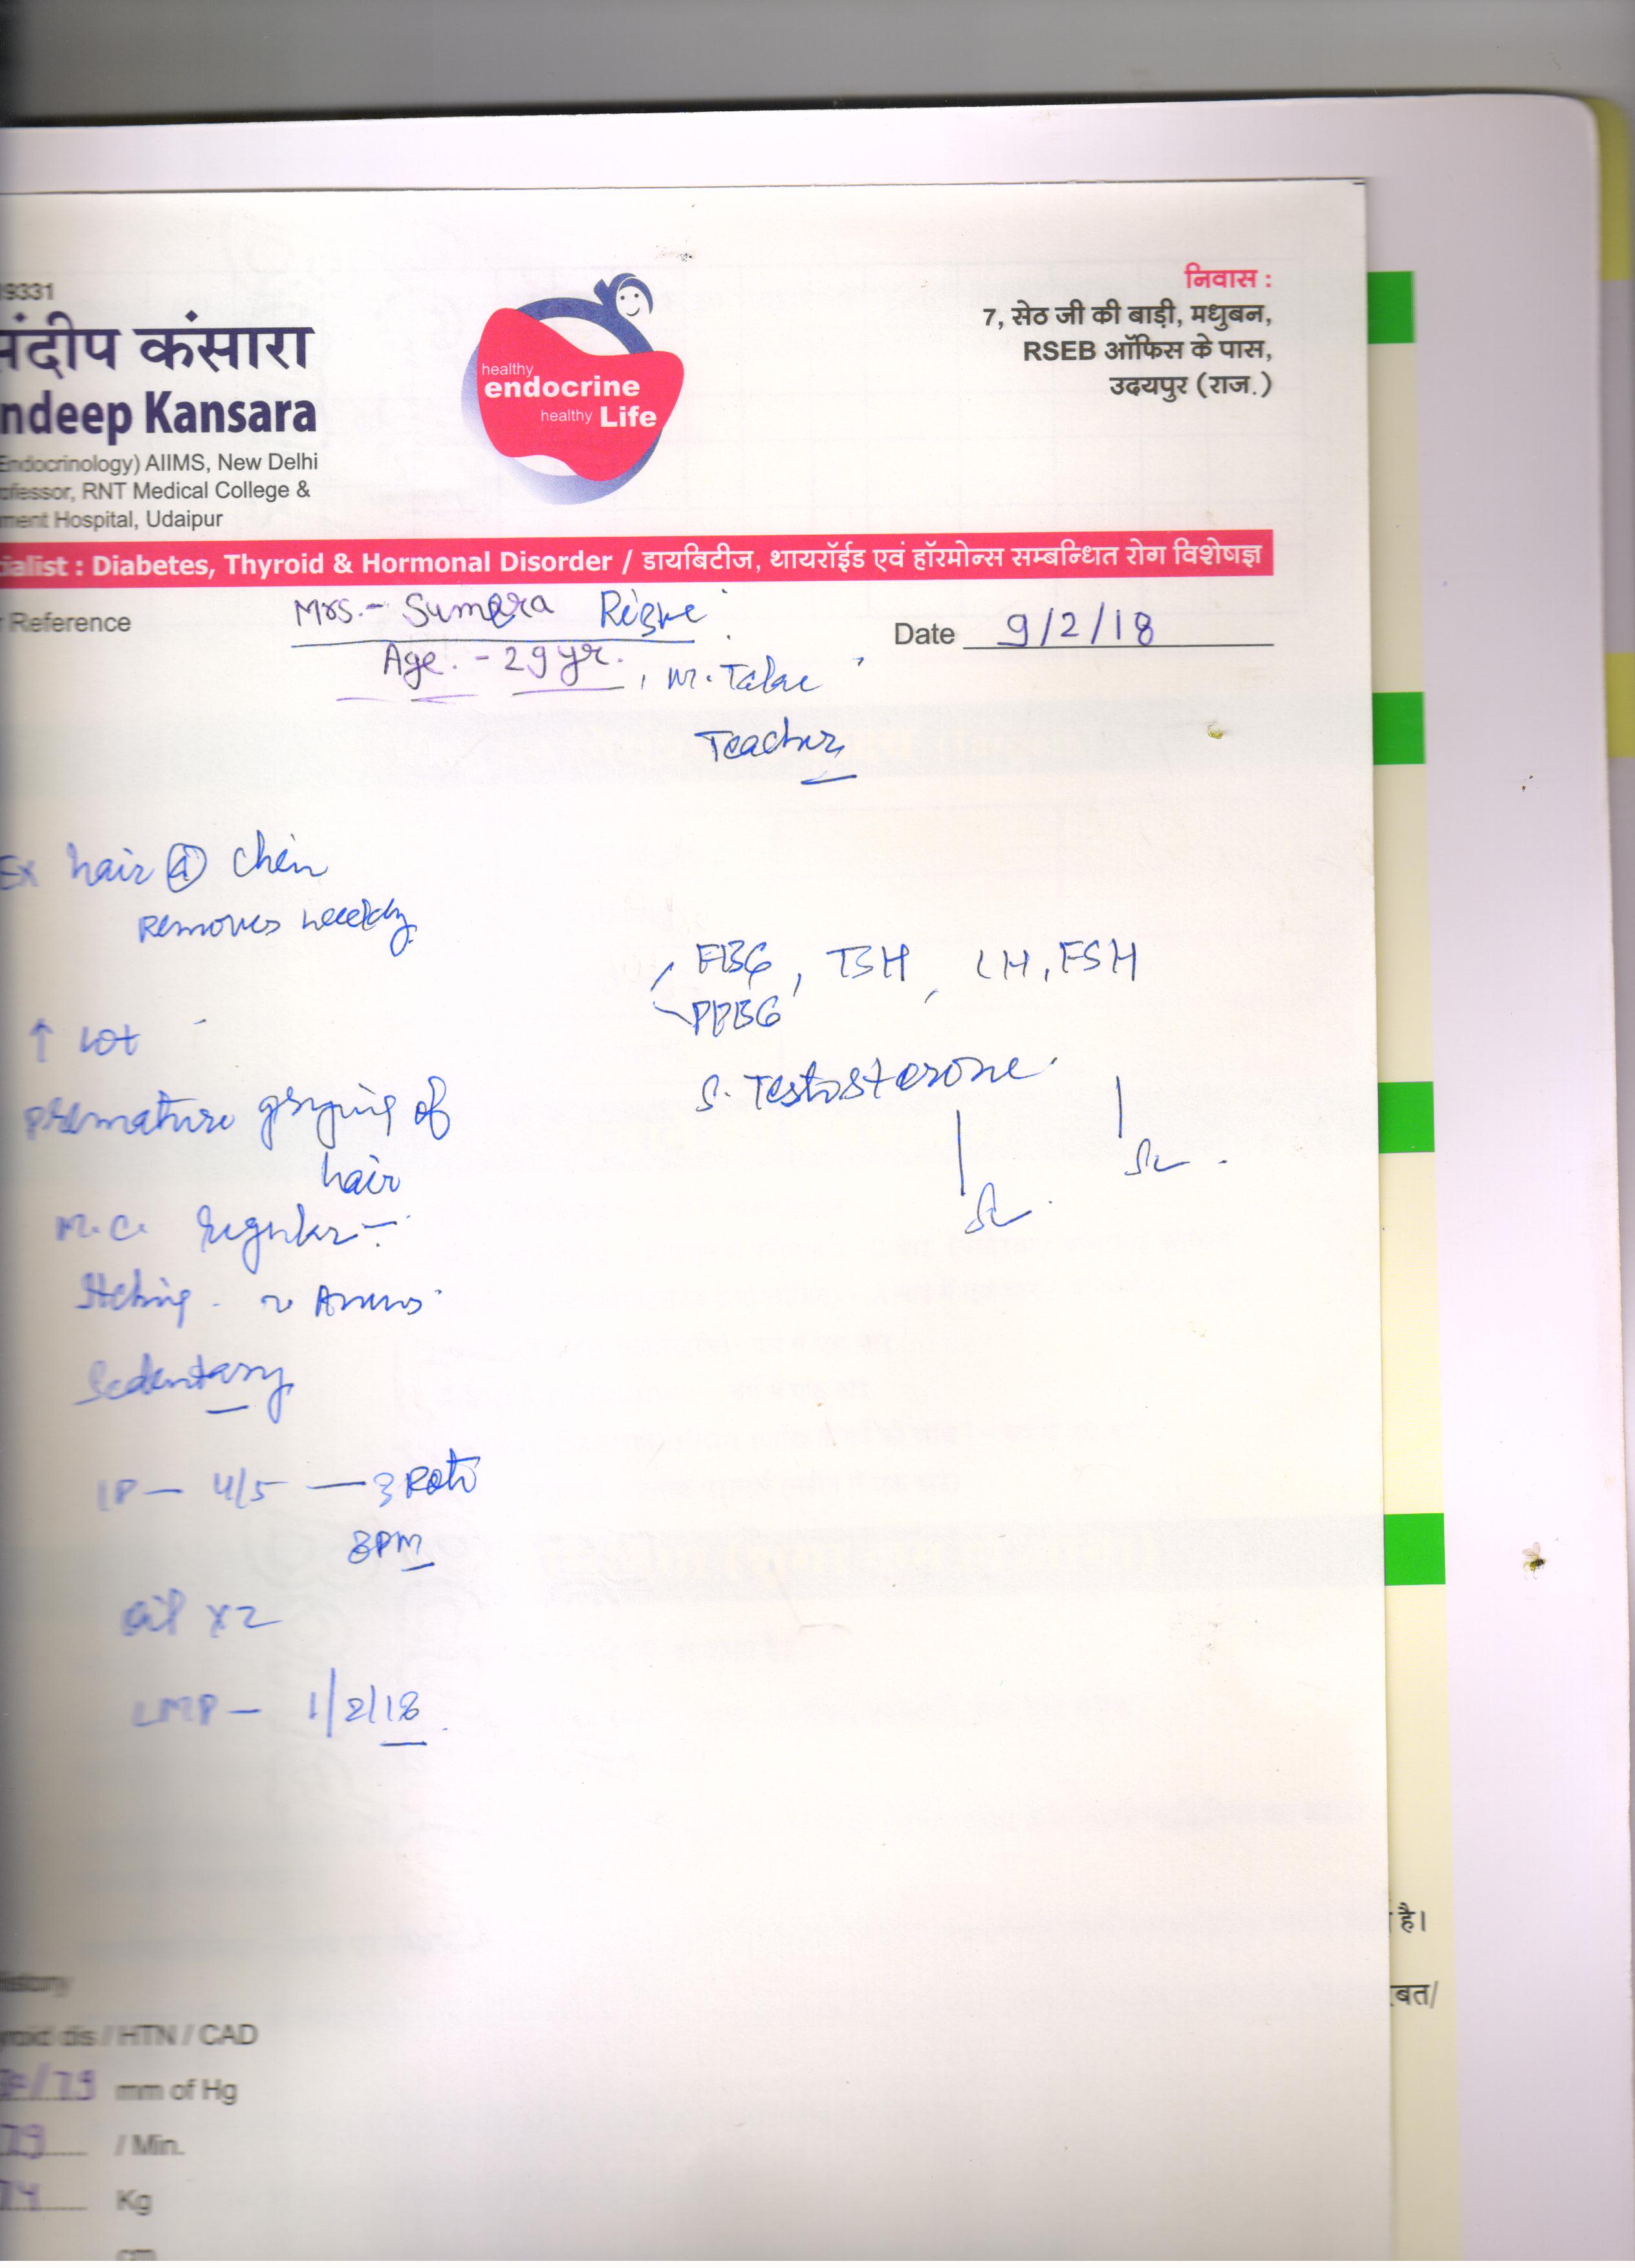 9331
संदीप कंसारा
ndeep Kansara
Endocrinology) AIIMS, New Delhi
ofessor, RNT Medical College &
ment Hospital, Udaipur
healthy
endocrine
healthy Life
निवास :
7, सेठ जी की बाड़ी, मधुबन,
RSEB ऑफिस के पास,
उदयपुर (राज.)
ialist : Diabetes, Thyroid & Hormonal Disorder / डायबिटीज, थायरॉईड एवं हॉरमोन्स सम्बन्धित रोग विशेषज्ञ
Reference
Mrs.- Sumera
Date 9/2/18
Age. - 29 yr.
Teacher
Ex hair @ Chin
Removes weekly
FBG, TSH, LH, FSH
PPBG
↑ wt
S. Testosterone
premature greying of
hair
M.C. Regular
Itching -
Sedentary
IP - 4/5 — 3 Roti
8PM
oil x 2
LMP - 1/2/18
istory
yroid dis / HTN / CAD
/79 mm of Hg
79 / Min.
74 Kg
cm
है।
बत/